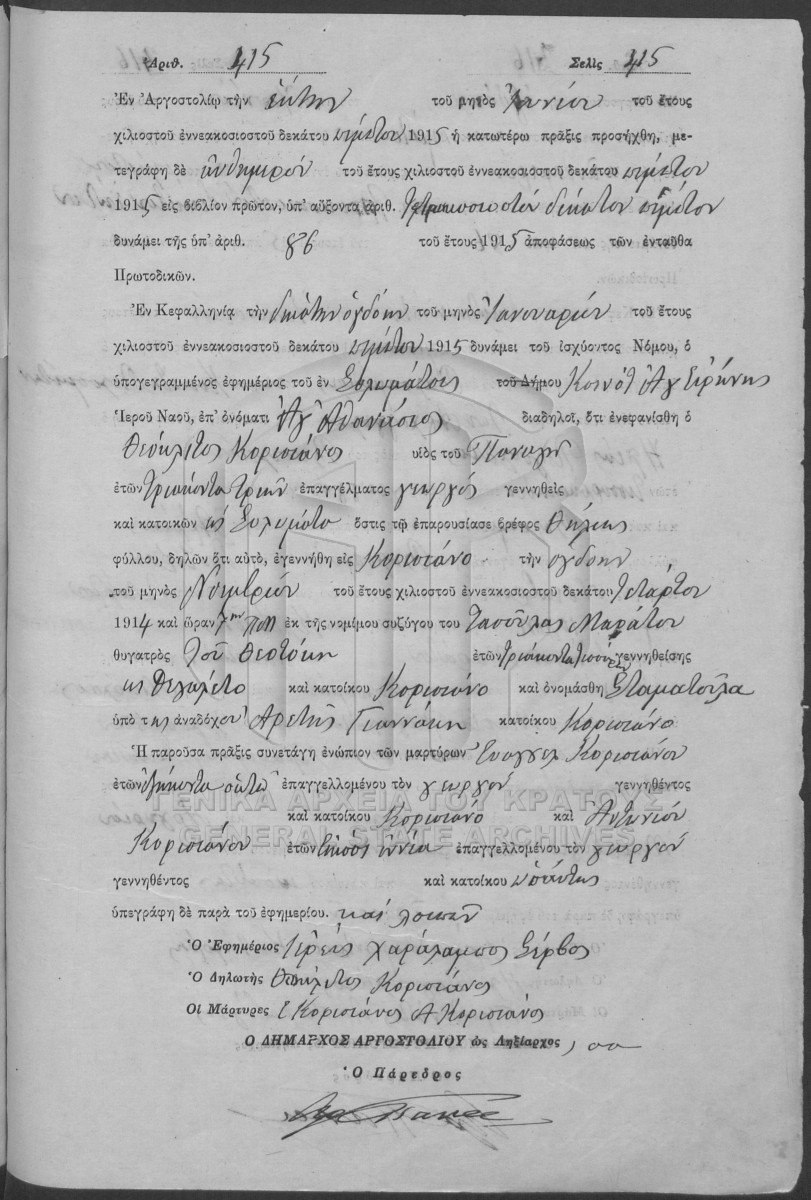 Ἀριθ. 415 Σελὶς 415
Ἐν Ἀργοστολίῳ τὴν ἕκτην τοῦ μηνὸς Ἰουνίου τοῦ ἔτους
χιλιοστοῦ ἐννεακοσιοστοῦ δεκάτου πέμπτου 1915 ἡ κατωτέρω πρᾶξις προσήχθη, με-
τεγράφη δὲ αὐθημερόν τοῦ ἔτους χιλιοστοῦ ἐννεακοσιοστοῦ δεκάτου πέμπτου
1915 εἰς βιβλίον πρῶτον, ὑπ' αὔξοντα ἀριθ. τετρακοσιοστόν δέκατον πέμπτον
δυνάμει τῆς ὑπ' ἀριθ. 86 τοῦ ἔτους 1915 ἀποφάσεως τῶν ἐνταῦθα
Πρωτοδικῶν.
Ἐν Κεφαλληνίᾳ τὴν δεκάτην ὀγδόην τοῦ μηνὸς Ἰανουαρίου τοῦ ἔτους
χιλιοστοῦ ἐννεακοσιοστοῦ δεκάτου πέμπτου 1915 δυνάμει τοῦ ἰσχύοντος Νόμου, ὁ
ὑπογεγραμμένος ἐφημέριος τοῦ ἐν τοῦ Δήμου Κοινότ Ἁγ Εἰρήνης
Ἱεροῦ Ναοῦ, ἐπ' ὀνόματι Ἁγ Ἀθανάσιος διαδηλοῖ, ὅτι ἐνεφανίσθη ὁ
Θεόκλητος Κορισιάνος υἱὸς τοῦ Παναγῆ
ἐτῶν τριάκοντα τριῶν ἐπαγγέλματος γεωργός γεννηθεὶς
καὶ κατοικῶν εἰς ὅστις τῷ ἐπαρουσίασε βρέφος θήλεος
φύλλου, δηλῶν ὅτι αὐτὸ, ἐγεννήθη εἰς Κορισιάνο τὴν ὀγδόην
τοῦ μηνὸς Νοεμβρίου τοῦ ἔτους χιλιοστοῦ ἐννεακοσιοστοῦ δεκάτου τετάρτου
1914 καὶ ὥραν 7ην πμ ἐκ τῆς νομίμου συζύγου του Τασούλας Μαράτου
θυγατρὸς τοῦ Θεοτόκη ἐτῶν τριάκοντα τεσσάρων γεννηθείσης
εἰς καὶ κατοίκου Κορισιάνο καὶ ὀνομάσθη Σταματούλα
ὑπὸ της ἀναδόχου Ἀρετῆς Γιαννάκη κατοίκου Κορισιάνο
Ἡ παροῦσα πρᾶξις συνετάγη ἐνώπιον τῶν μαρτύρων Εὐαγγελ Κορισιάνου
ἐτῶν ἑξήκοντα ὀκτώ ἐπαγγελλομένου τὸν γεωργόν γεννηθέντος
καὶ κατοίκου Κορισιάνο καὶ Ἀντωνίου
Κορισιάνου ἐτῶν εἴκοσι ἐννέα ἐπαγγελλομένου τὸν γεωργόν
γεννηθέντος καὶ κατοίκου ὡσαύτως
ὑπεγράφη δὲ παρὰ τοῦ ἐφημερίου. καί λοιπῶν
Ὁ Ἐφημέριος Ἱερεύς Χαράλαμπος Σέρβος
Ὁ Δηλωτὴς Θεόκλητος Κορισιάνος
Οἱ Μάρτυρες Ε Κορισιάνος Α Κορισιάνος
Ο ΔΗΜΑΡΧΟΣ ΑΡΓΟΣΤΟΛΙΟΥ ὡς Ληξίαρχος
Ὁ Πάρεδρος
ΓΕΝΙΚΑ ΑΡΧΕΙΑ ΤΟΥ ΚΡΑΤΟΥΣ
GENERAL STATE ARCHIVES